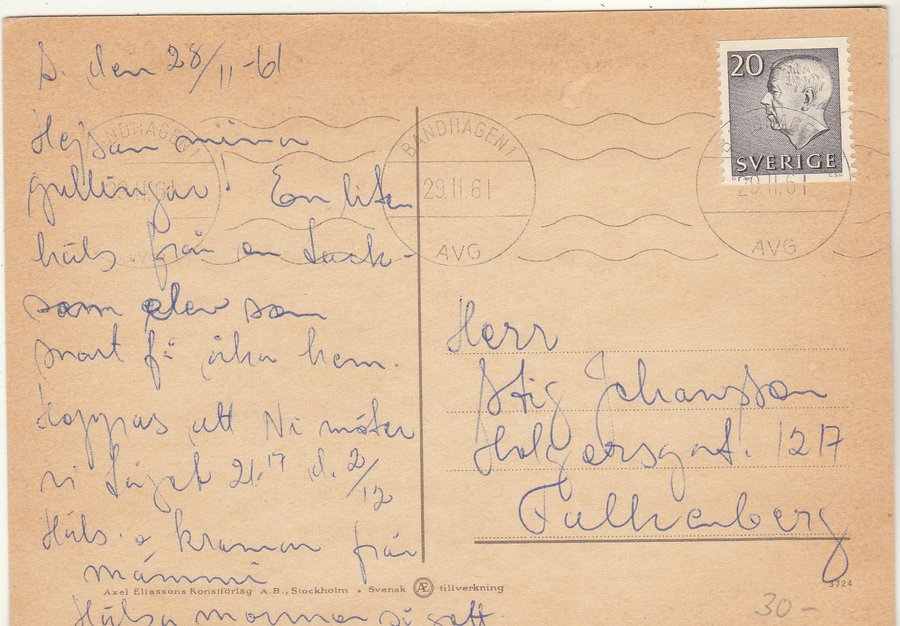 D. den 28/11-61
Hejsan mina
gullingar! En liten
häls. från en tack-
sam elev som
snart få åka hem.
Hoppas att Ni möter
vi tåget 21.17 d. 2/12
Häls. o kramar från
mammi
Hälsa mormor så gott.
20
SVERIGE
BANDHAGEN 1
29.11.61
AVG
BANDHAGEN 1
29.11.61
AVG
Herr
Stig Johansson
Holgersgat. 1217
Falkenberg
Axel Eliassons Konstförlag A.B., Stockholm • Svensk Æ tillverkning
3724
30-